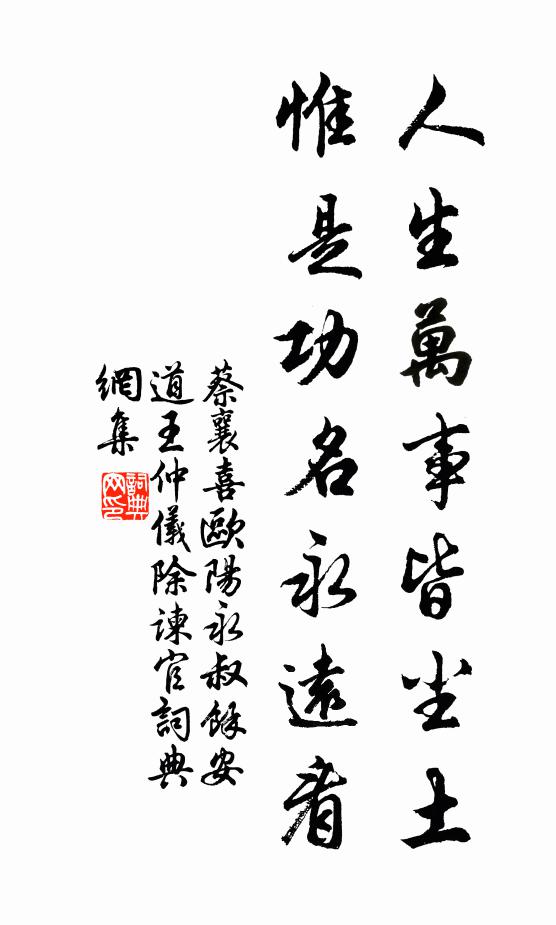 人生萬事皆尘土
惟是功名永遠看
蔡襄喜歐陽永叔餘安
道王仲儀除諫官詞典
網集
詞典
网印